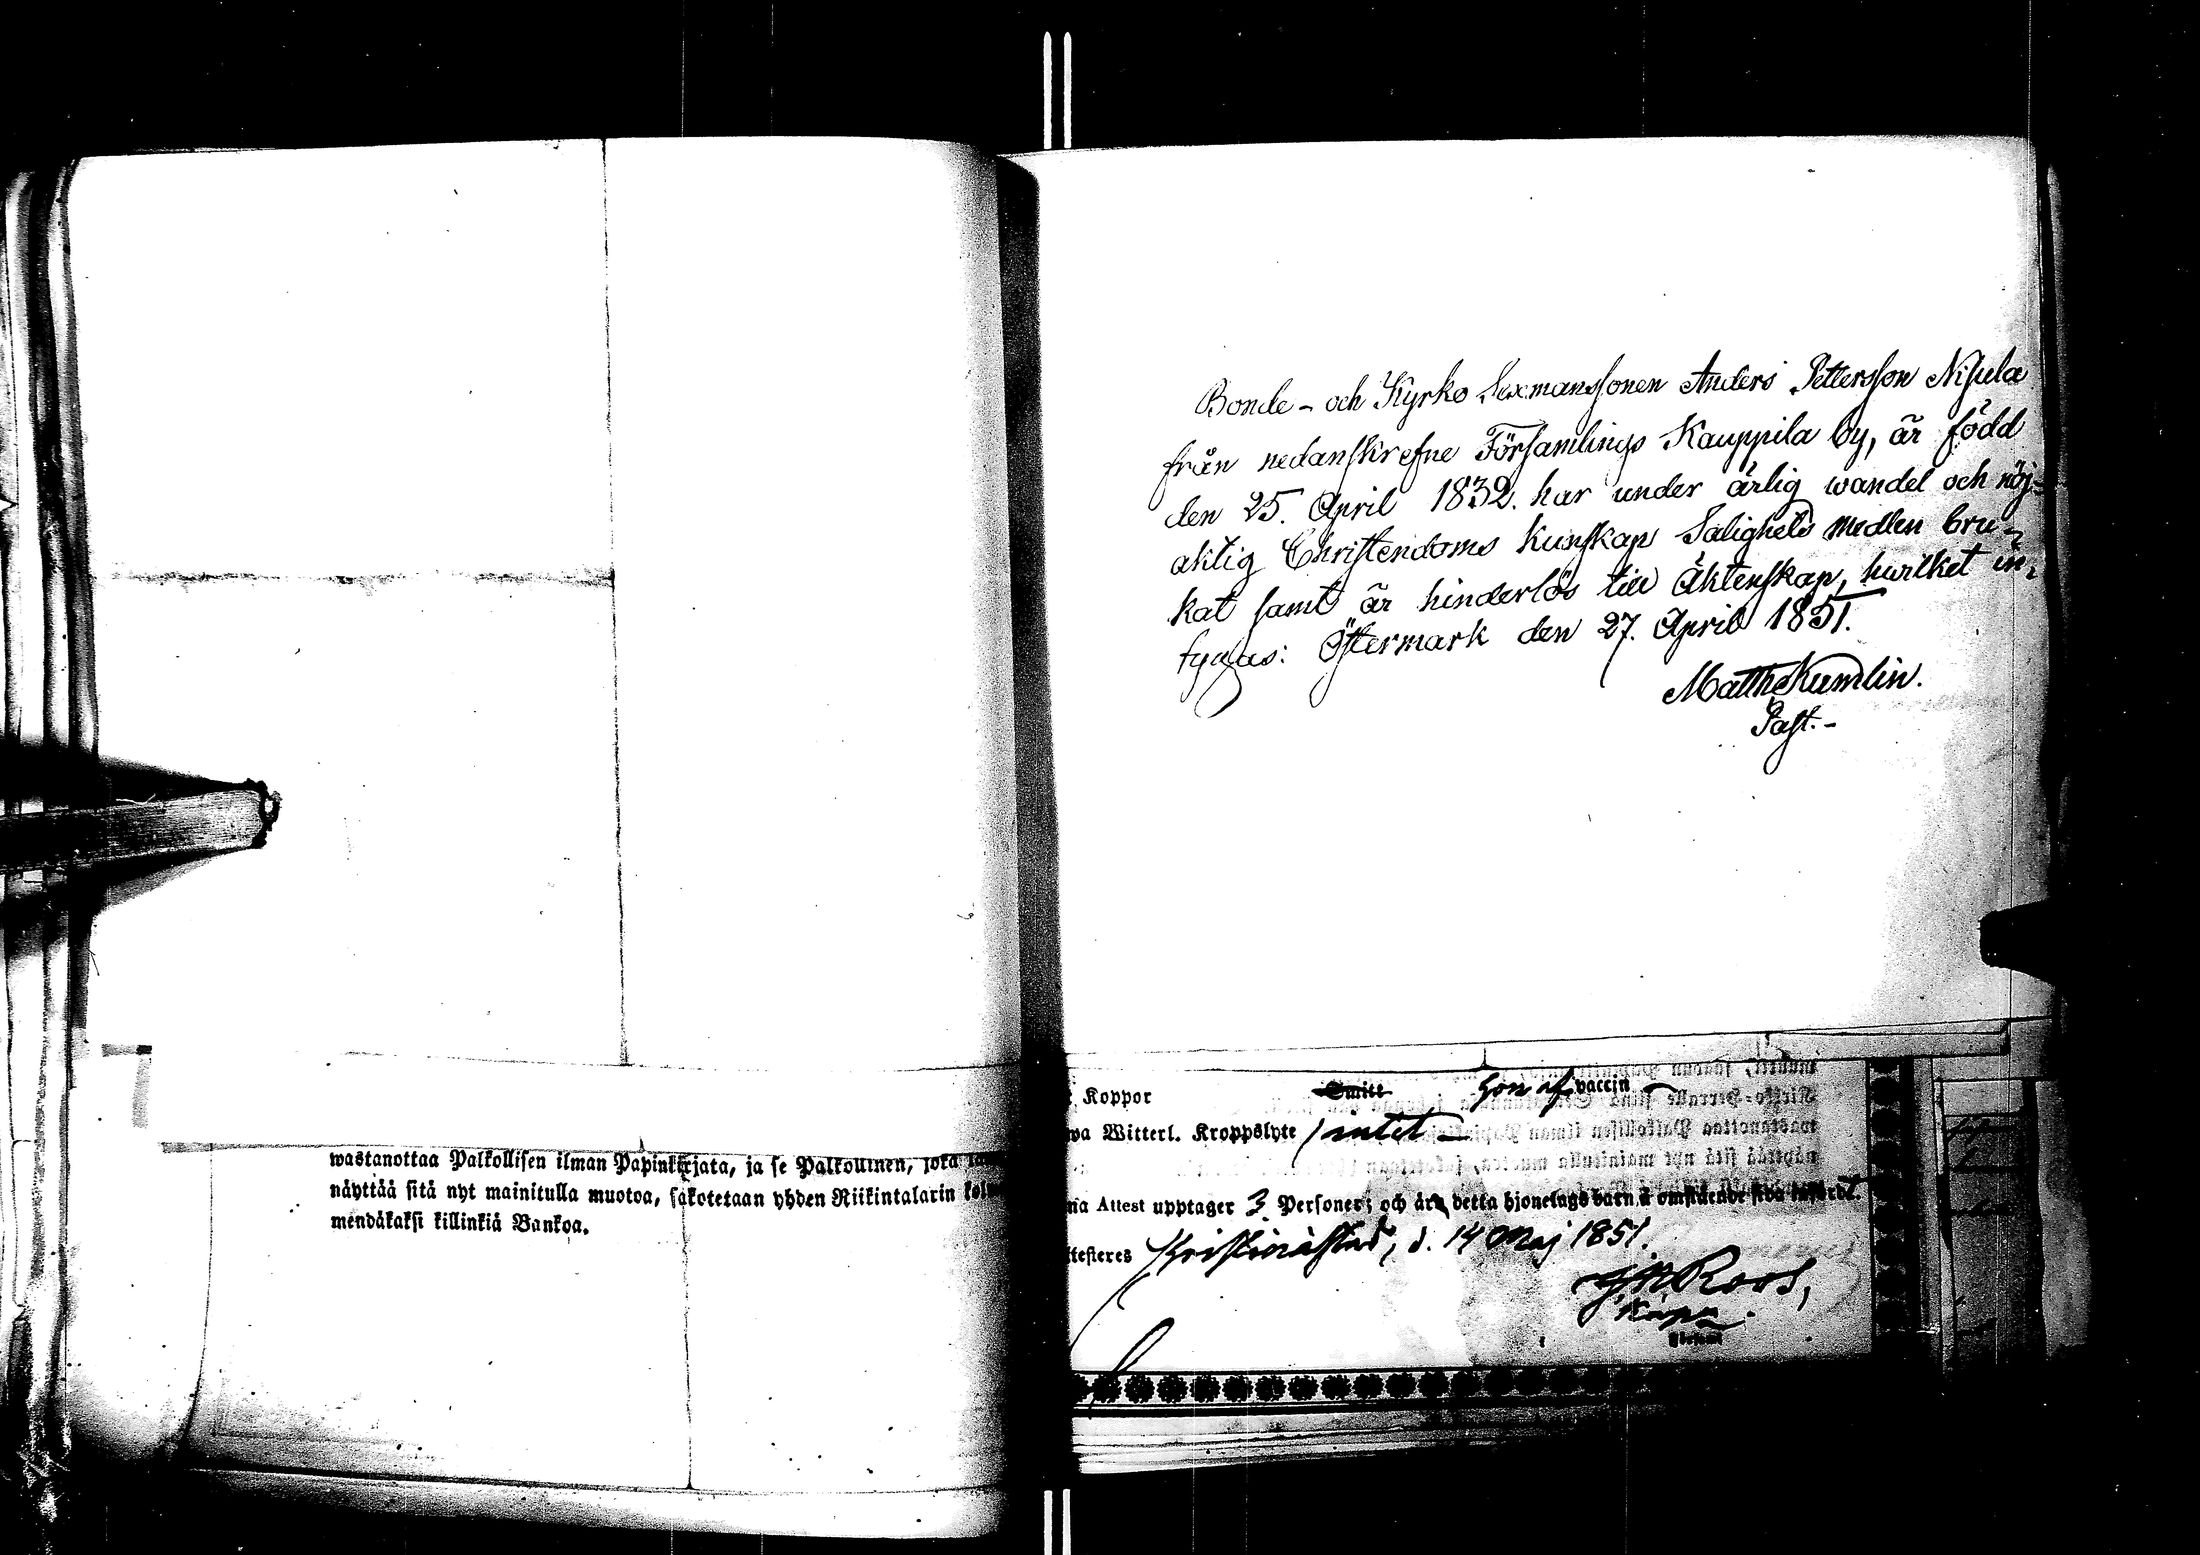 wastanottaa Palkollisen ilman Papinkirjata, ja se Palkollinen, joka
näyttää sitä nyt mainitulla muotoa, sakotetaan yhden Riikintalarin
mendäkaksi killinkiä Bankoa.
Bonde - och Kyrko Sexmanssonen Anders Pettersson Nisula
från nedanskrefne Församlings Kauppila by, är född
den 25. April 1832. har under ärlig wandel och nöj-
aktig Christendoms kunskap Salighets medlen bru-
kat samt är hinderlös till Äktenskap, hwilket in-
tygas: Östermark den 27. April 1851.
Matth Kumlin.
Past.-
Koppor Smitt hon af vaccin
wa Witterl. Kroppslyte intet -
na Attest upptager 3 Personer; och är detta hjonelags barn å omstående sida infördt.
ttesteres Kristinästad, d. 14 Maj 1851.
Roos,
Kapn.